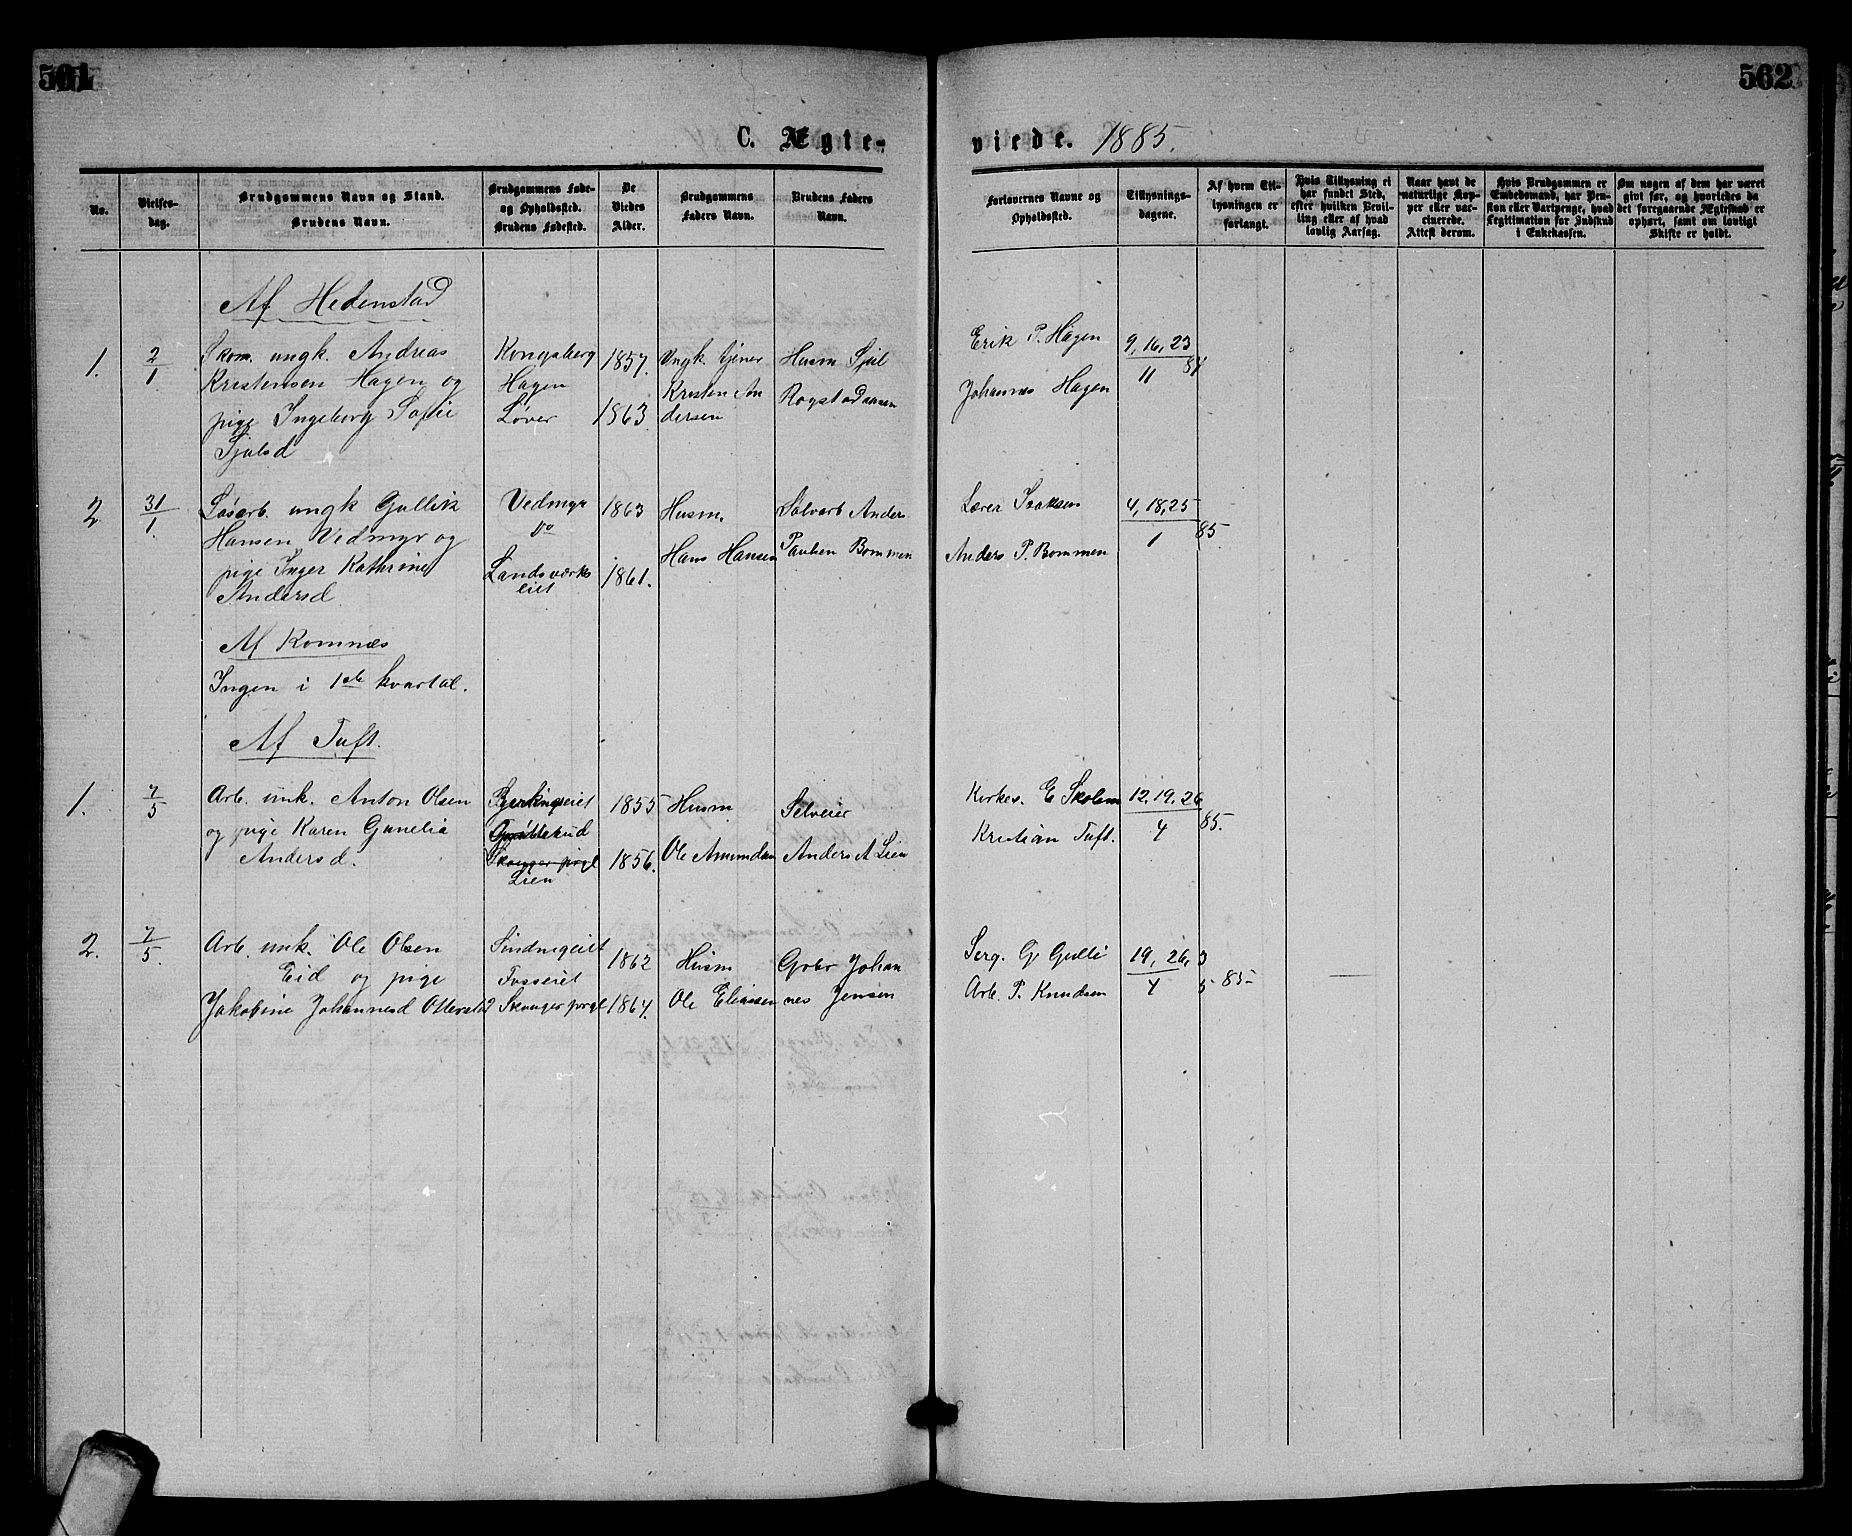 561
562
C. Ægte-
viede. 1885.
No.
Vielses-
dag.
Brudgommens Navn og Stand.
Brudens Navn.
Brudgommens Føde-
og Opholdssted.
Brudens Fødested.
De
Viedes
Alder.
Brudgommens
Faders Navn.
Brudens Faders
Navn.
Forlovernes Navne og
Opholdssted.
Tillysnings-
dagene.
Af hvem Til-
lysningen er
forlangt.
Hvis Tillysning ei
har fundet Sted,
efter hvilken Bevil-
ling eller af hvad
lovlig Aarsag.
Naar havt de
naturlige Kop-
per eller var-
cinerede.
Attest derom.
Hvis Brudgommen er
Embedsmand, har Pen-
sion eller Vartpenge, hvad
Legitimation for Indskud
i Enkekassen.
Om nogen af dem har været
givt før, og hvorledes da
det foregaaende Ægteskab er
ophørt, samt om lovligt
Skifte er holdt.
Af Hedenstad
1. 2/1 Skom. ungk. Andreas
Kristensen Hagen og
pige Ingeborg Sofie
Sjulsd
Kongsberg
Hagen
Løver
1857.
1863.
Ungk. tjener
Kristen An
dersen
Husm Sjul
Rogstadaasen
Erik P. Hagen
Johannes Hagen
9, 16, 23
11 84
2 31/1. Løsarb. ungk Gullik
Hansen Vedmyr og
pige Inger Kathrine
Andersd.
Vedmyr
do
Landsværks
eiet
1863
1861.
Husm.
Hans Hansen
Selvarb Anders
Paulsen Bommen
Lærer Isaksen
Anders P. Bommen
4, 18, 25
1 85.
Af Komnæs
Ingen i 1ste kvartal.
Af Tuft.
1. 7/5 Arb. unk. Anton Olsen
og pige Karen Gunelia
Andersd.
Skauger prgl
Lien
1855
1856.
Husm.
Ole Amundsen
Selveier
Anders A Lien
Kirkes. E Skolem
Kristian Tuft.
12, 19, 26
4 85.
2. 7/5. Arb. unk. Ole Olsen
Eid og pige
Jakobine Johannesd
Fosseiet
Skauger prgl
1862
1864.
Husm
Ole Eliassen
Grbr Johan
nes Jensen
Serg. G. Gulli
Arb. P. Knudsen
19, 26, 3
4 5 85